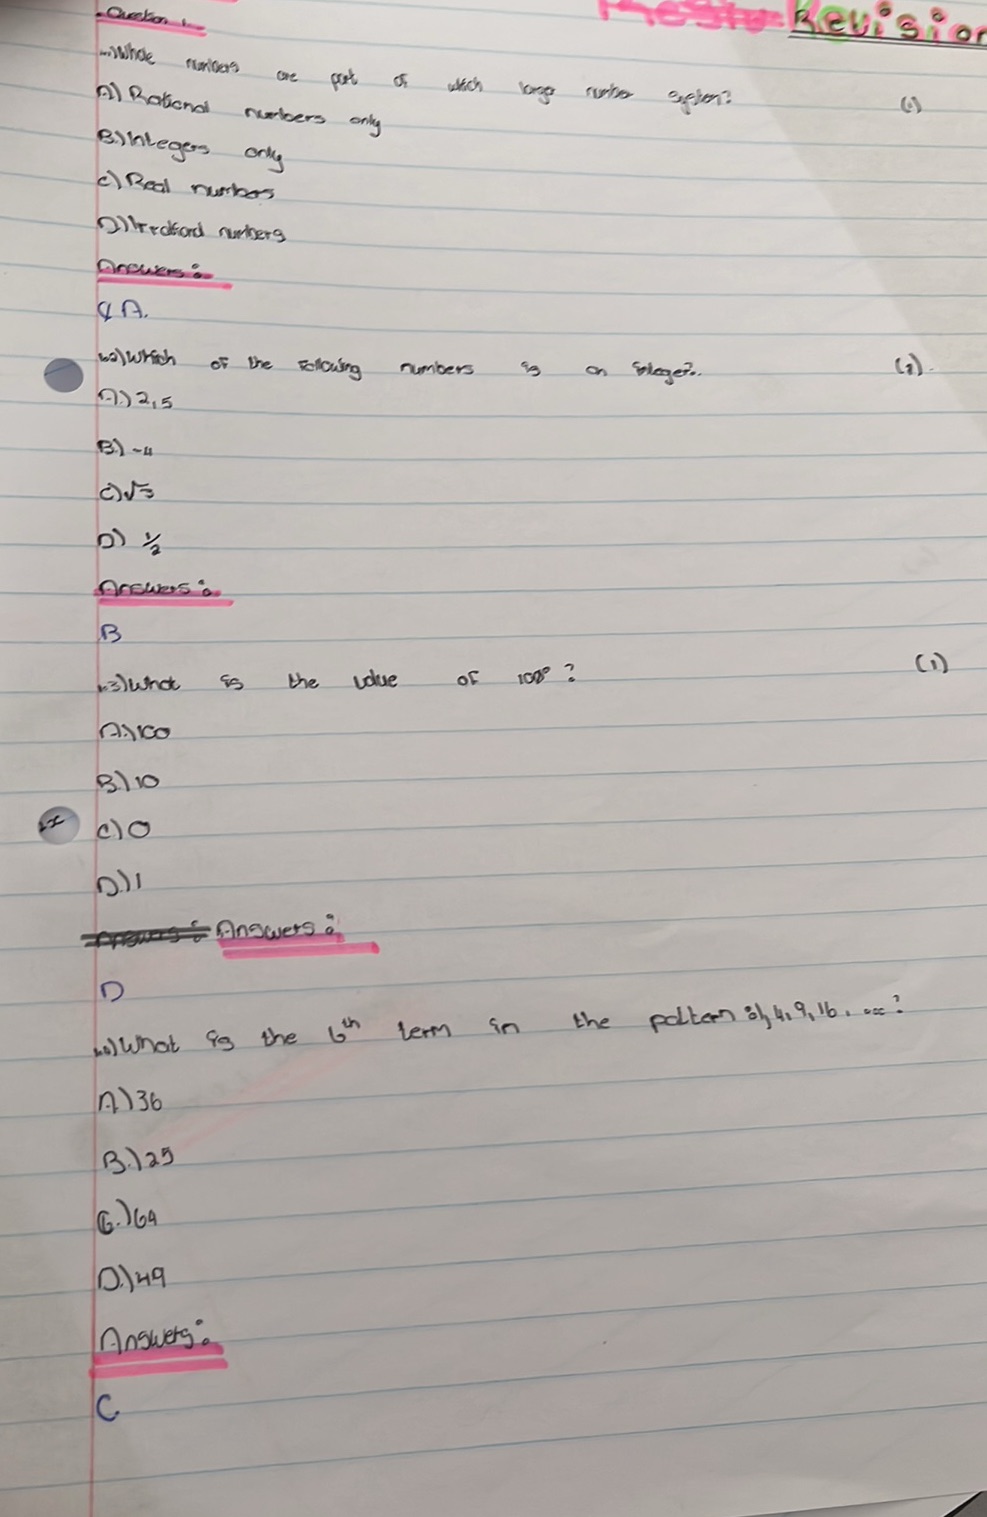 Revision
Question 1
1.1) Whole numbers are part of which larger number system? (1)
A) Rational numbers only
B.) Integers only
C) Real numbers
D.) Irrational numbers
Answers:
A.
1.2) Which of the following numbers is an integer?. (1).
A.) 2,5
B.) -4
C) √3
D) 1/2
Answers:
B
1.3) What is the value of 100⁰? (1)
A.) 100
B.) 10
C.) 0
D.) 1
Answers:
D
1.4) What is the 6th term in the pattern: 1, 4, 9, 16, ...?
A.) 36
B.) 25
C.) 64
D.) 49
Answers:
C